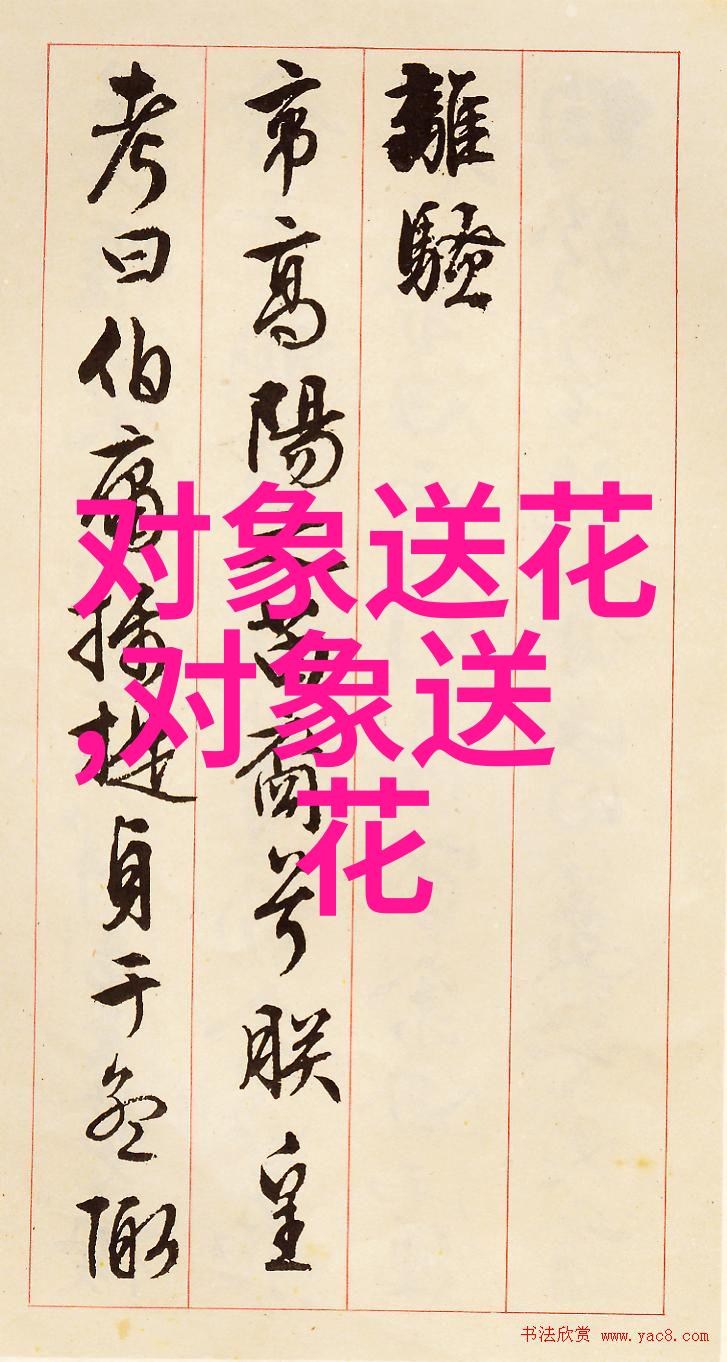 離騷
帝高陽之苗裔兮朕皇
考曰伯庸攝提貞于孟陬
对象送花
,对象送
花
书法欣赏 www.yac8.com